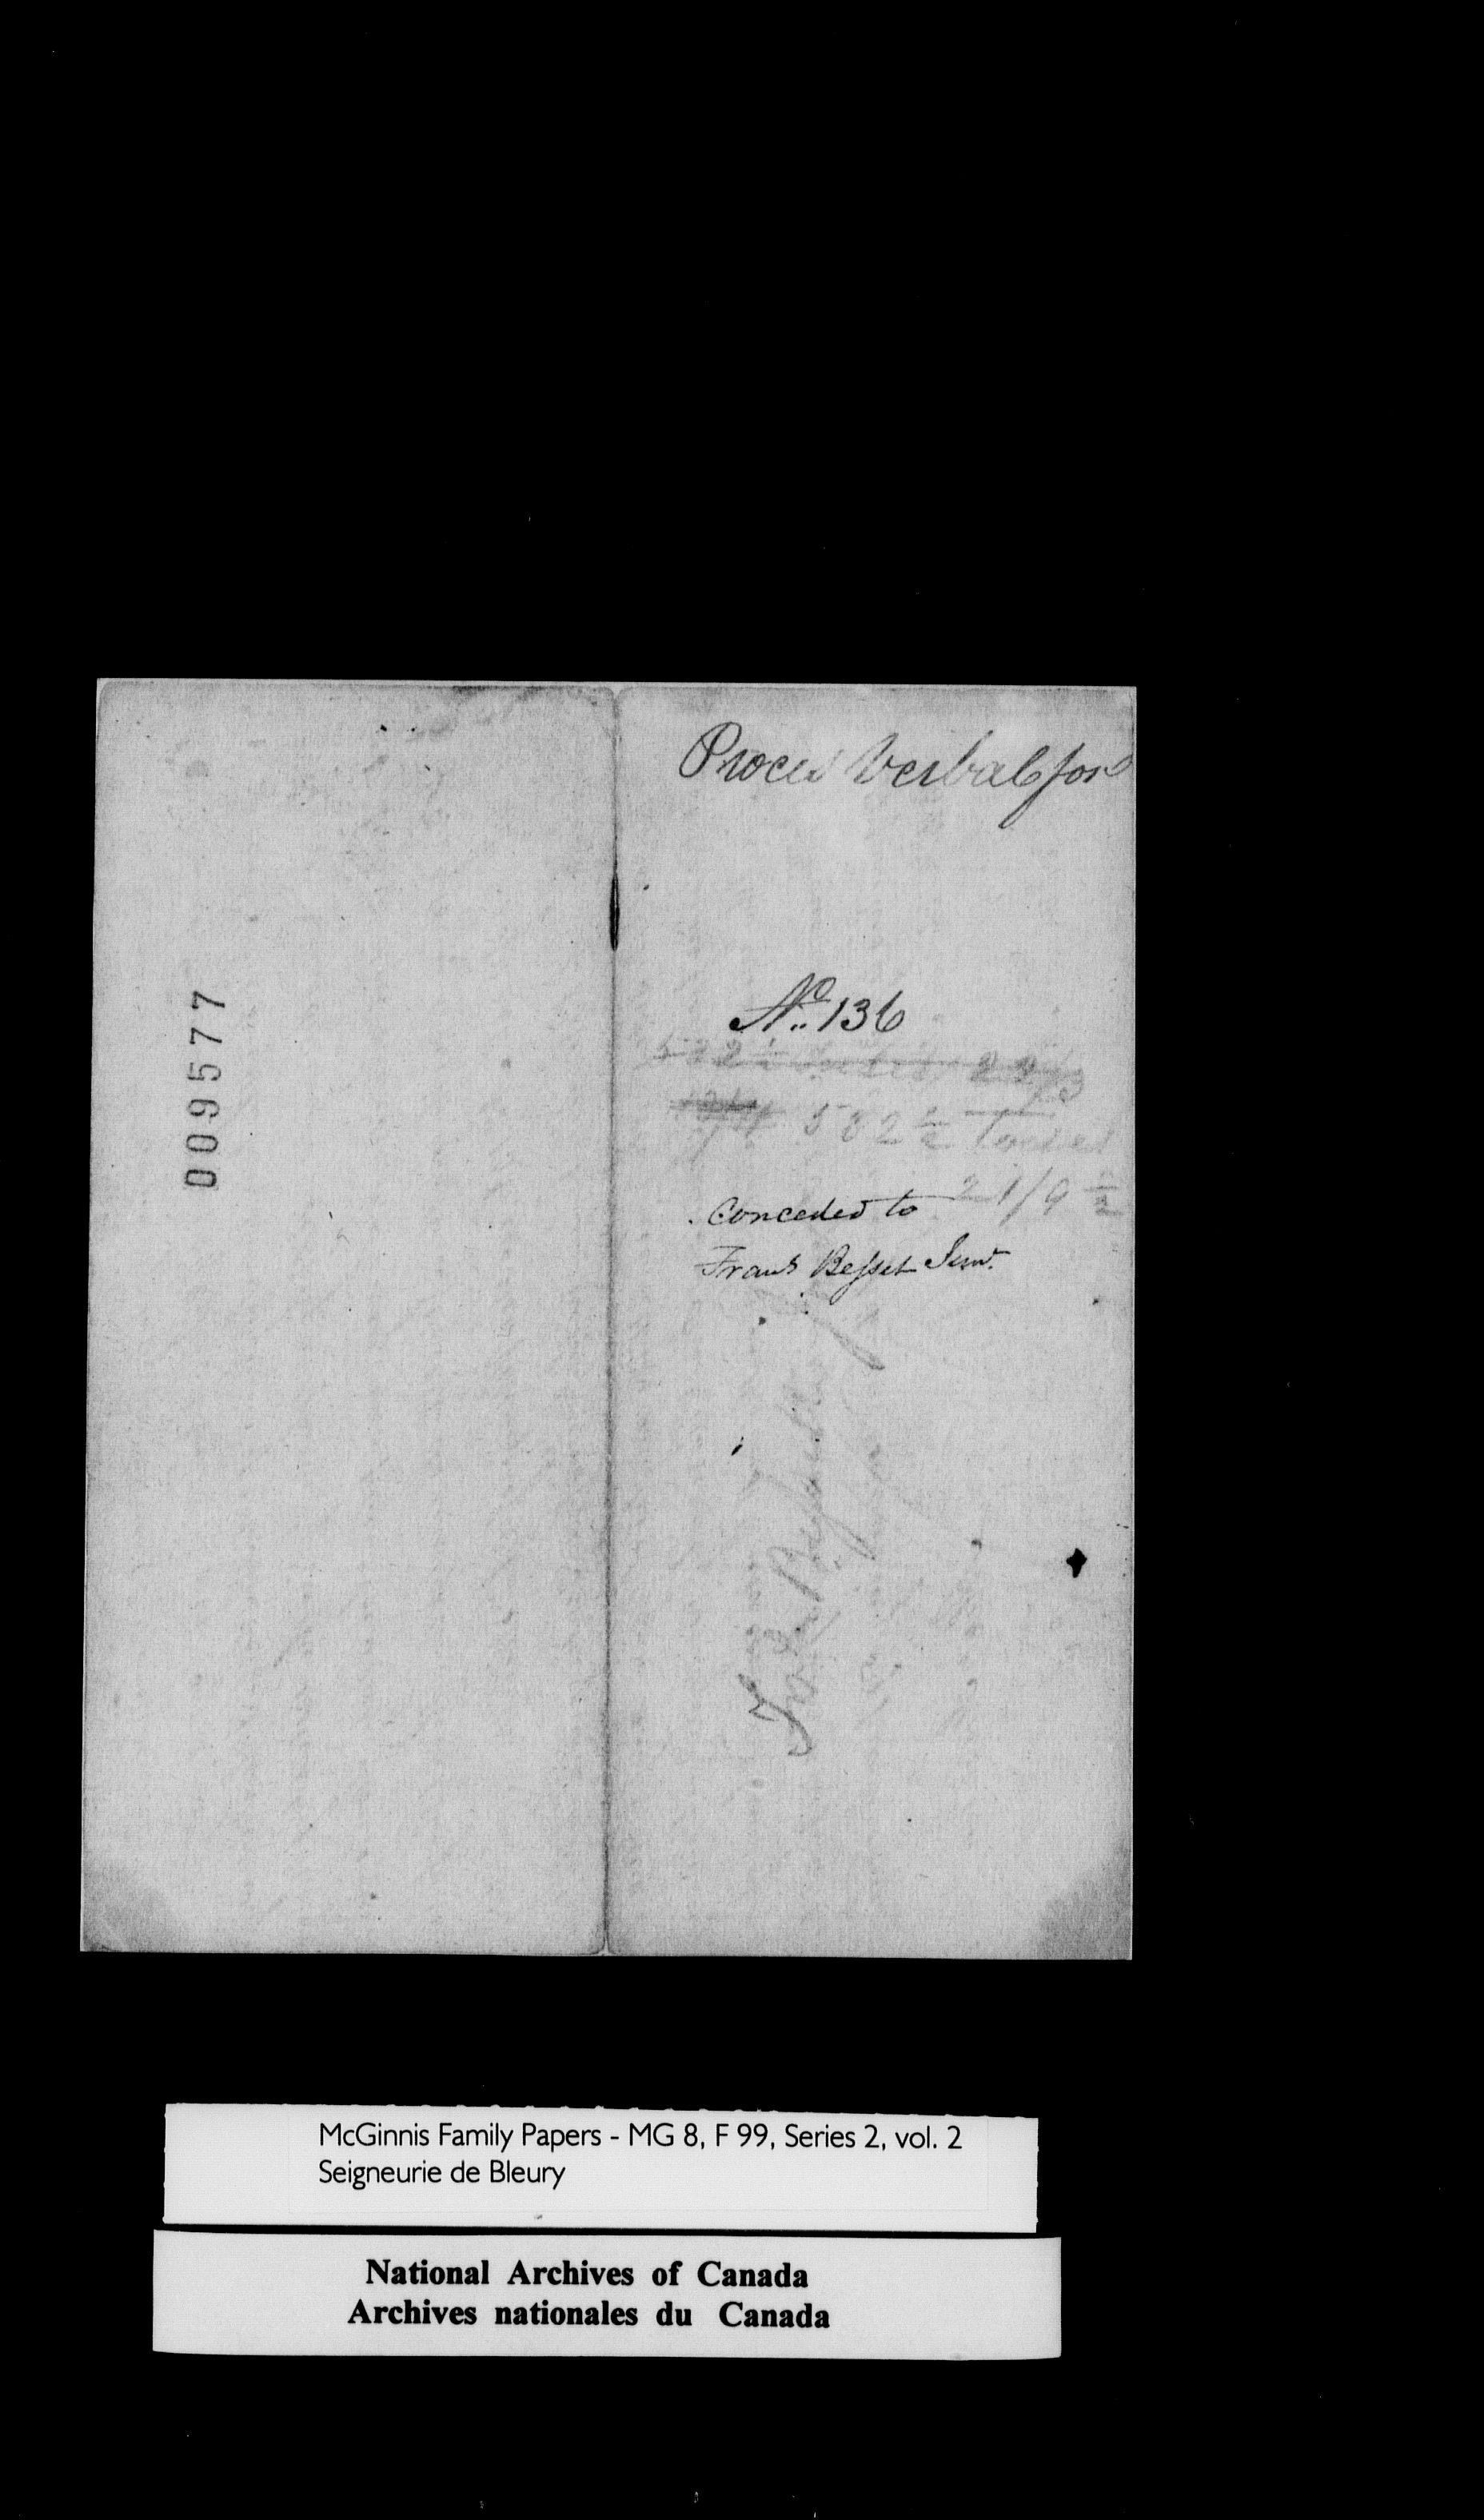 009577
Proces Verbal for
No. 136
522½ 22/3
582½
21/9½
Conceded to
Frans Besset Senr.
McGinnis Family Papers - MG 8, F 99, Series 2, vol. 2
Seigneurie de Bleury
National Archives of Canada
Archives nationales du Canada